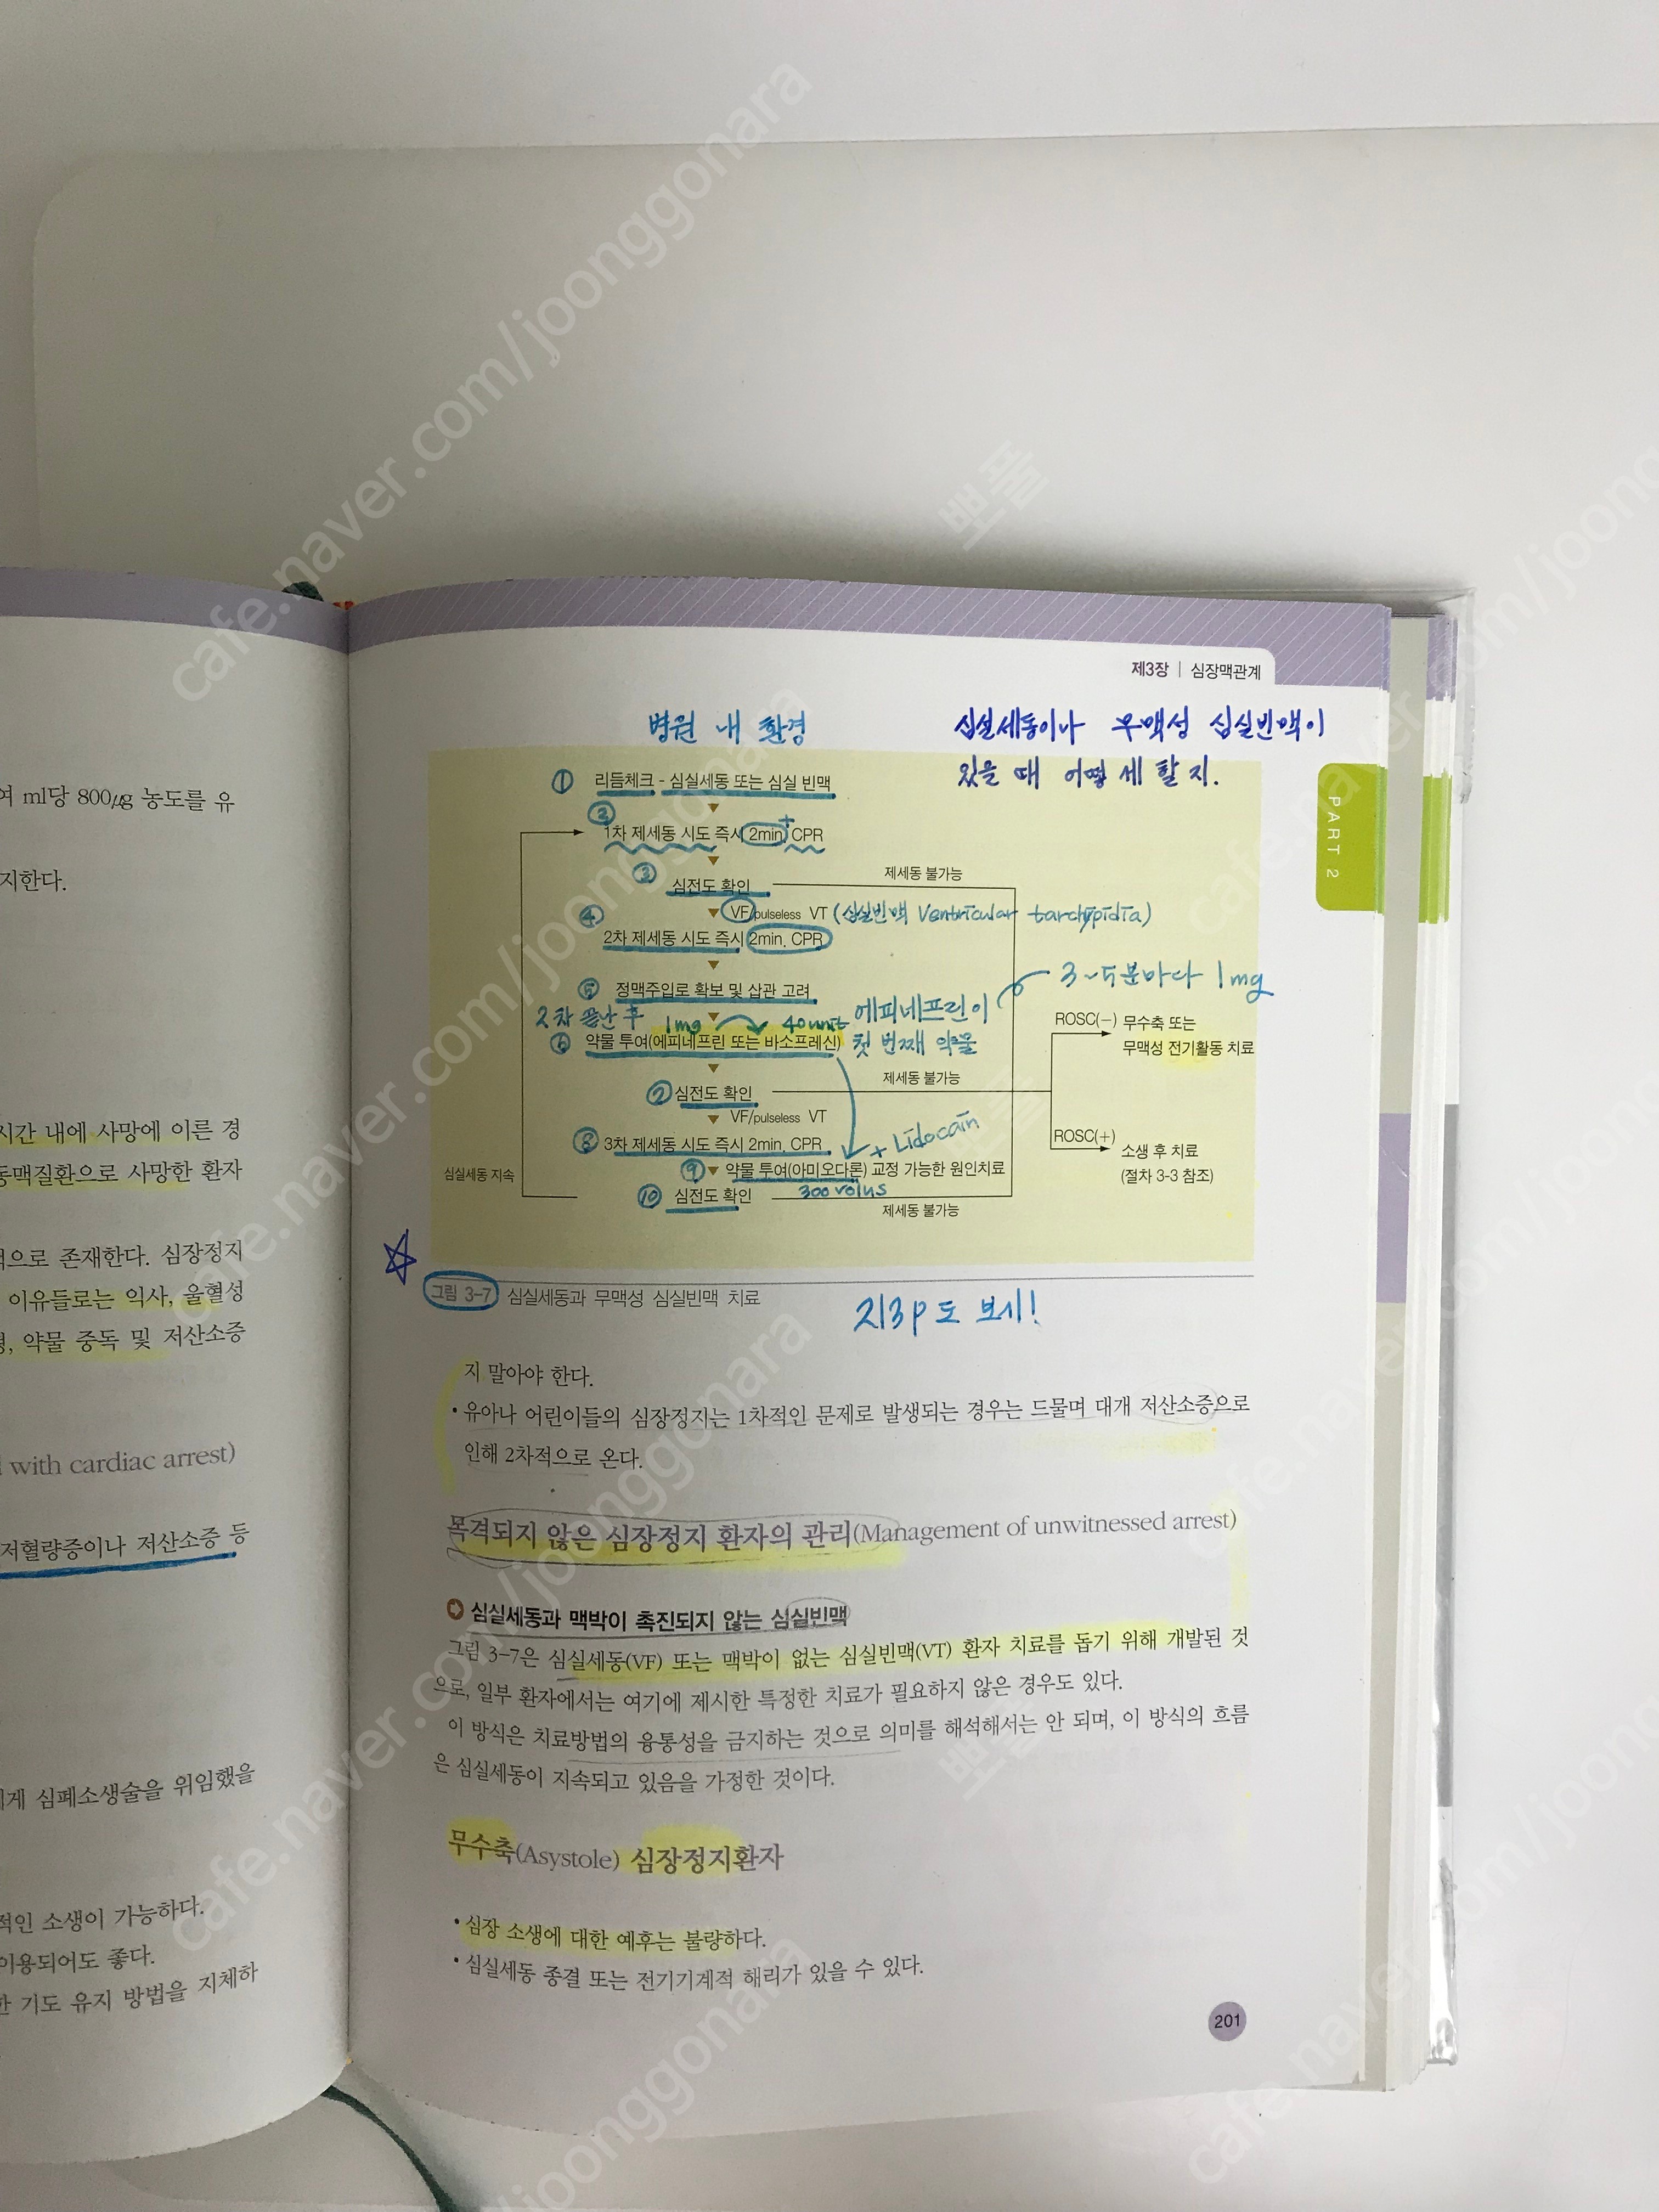 여 ml당 800㎍ 농도를 유
지한다.
시간 내에 사망에 이른 경
동맥질환으로 사망한 환자
적으로 존재한다. 심장정지
이유들로는 익사, 울혈성
약물 중독 및 저산소증
with cardiac arrest)
저혈량증이나 저산소증 등
게 심폐소생술을 위임했을
적인 소생이 가능하다.
이용되어도 좋다.
한 기도 유지 방법을 지체하
제3장 | 심장맥관계
병원 내 환경
심실세동이나 무맥성 심실빈맥이
있을 때 어떻게 할지.
PART 2
① 리듬체크 - 심실세동 또는 심실 빈맥
② 1차 제세동 시도 즉시 2min+ CPR
③ 심전도 확인
제세동 불가능
④ VF/pulseless VT (심실빈맥 Ventricular
2차 제세동 시도 즉시 2min. CPR
⑤ 정맥주입로 확보 및 삽관 고려
3~5분마다 1mg
2차 끝난 후 1mg 40unit
에피네프린이
첫 번째 약물
⑥ 약물 투여(에피네프린 또는 바소프레신)
ROSC(-) 무수축 또는
무맥성 전기활동 치료
⑦ 심전도 확인
제세동 불가능
VF/pulseless VT
⑧ 3차 제세동 시도 즉시 2min. CPR
+ Lidocain
ROSC(+) 소생 후 치료
(절차 3-3 참조)
심실세동 지속
⑨ 약물 투여(아미오다론) 교정 가능한 원인치료
300 volus
⑩ 심전도 확인
제세동 불가능
그림 3-7 심실세동과 무맥성 심실빈맥 치료
213p도 보시!
지 말아야 한다.
• 유아나 어린이들의 심장정지는 1차적인 문제로 발생되는 경우는 드물며 대개 저산소증으로
인해 2차적으로 온다.
목격되지 않은 심장정지 환자의 관리(Management of unwitnessed arrest)
심실세동과 맥박이 촉진되지 않는 심실빈맥
그림 3-7은 심실세동(VF) 또는 맥박이 없는 심실빈맥(VT) 환자 치료를 돕기 위해 개발된 것
으로, 일부 환자에서는 여기에 제시한 특정한 치료가 필요하지 않은 경우도 있다.
이 방식은 치료방법의 융통성을 금지하는 것으로 의미를 해석해서는 안 되며, 이 방식의 흐름
은 심실세동이 지속되고 있음을 가정한 것이다.
무수축(Asystole) 심장정지환자
• 심장 소생에 대한 예후는 불량하다.
• 심실세동 종결 또는 전기기계적 해리가 있을 수 있다.
201
cafe.naver.com/joonggonara
뽀폴